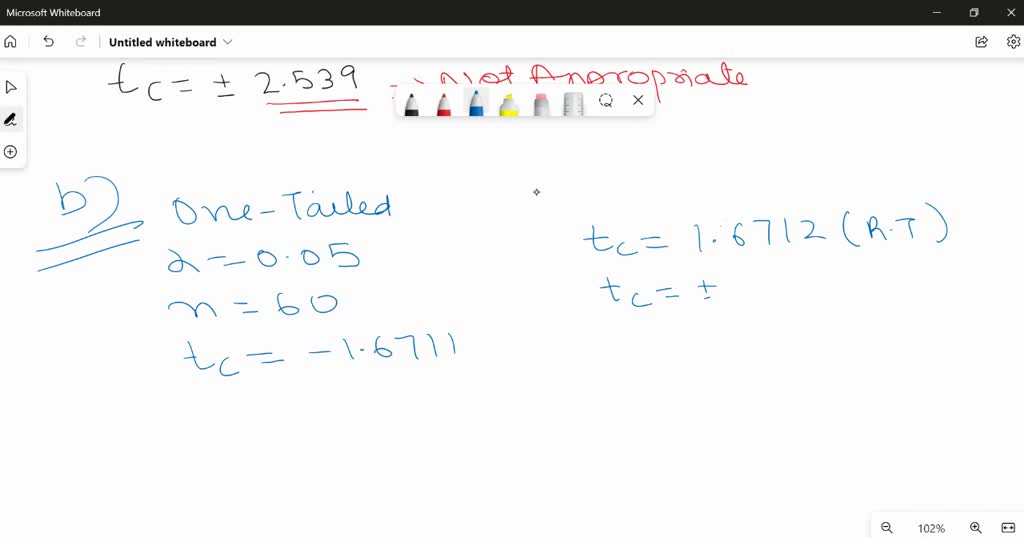 Microsoft Whiteboard
Untitled whiteboard
tc = ± 2.539
b) One-Tailed
α = 0.05
n = 60
tc = -1.6711
tc = 1.6712 (R.T)
tc = ±
102%